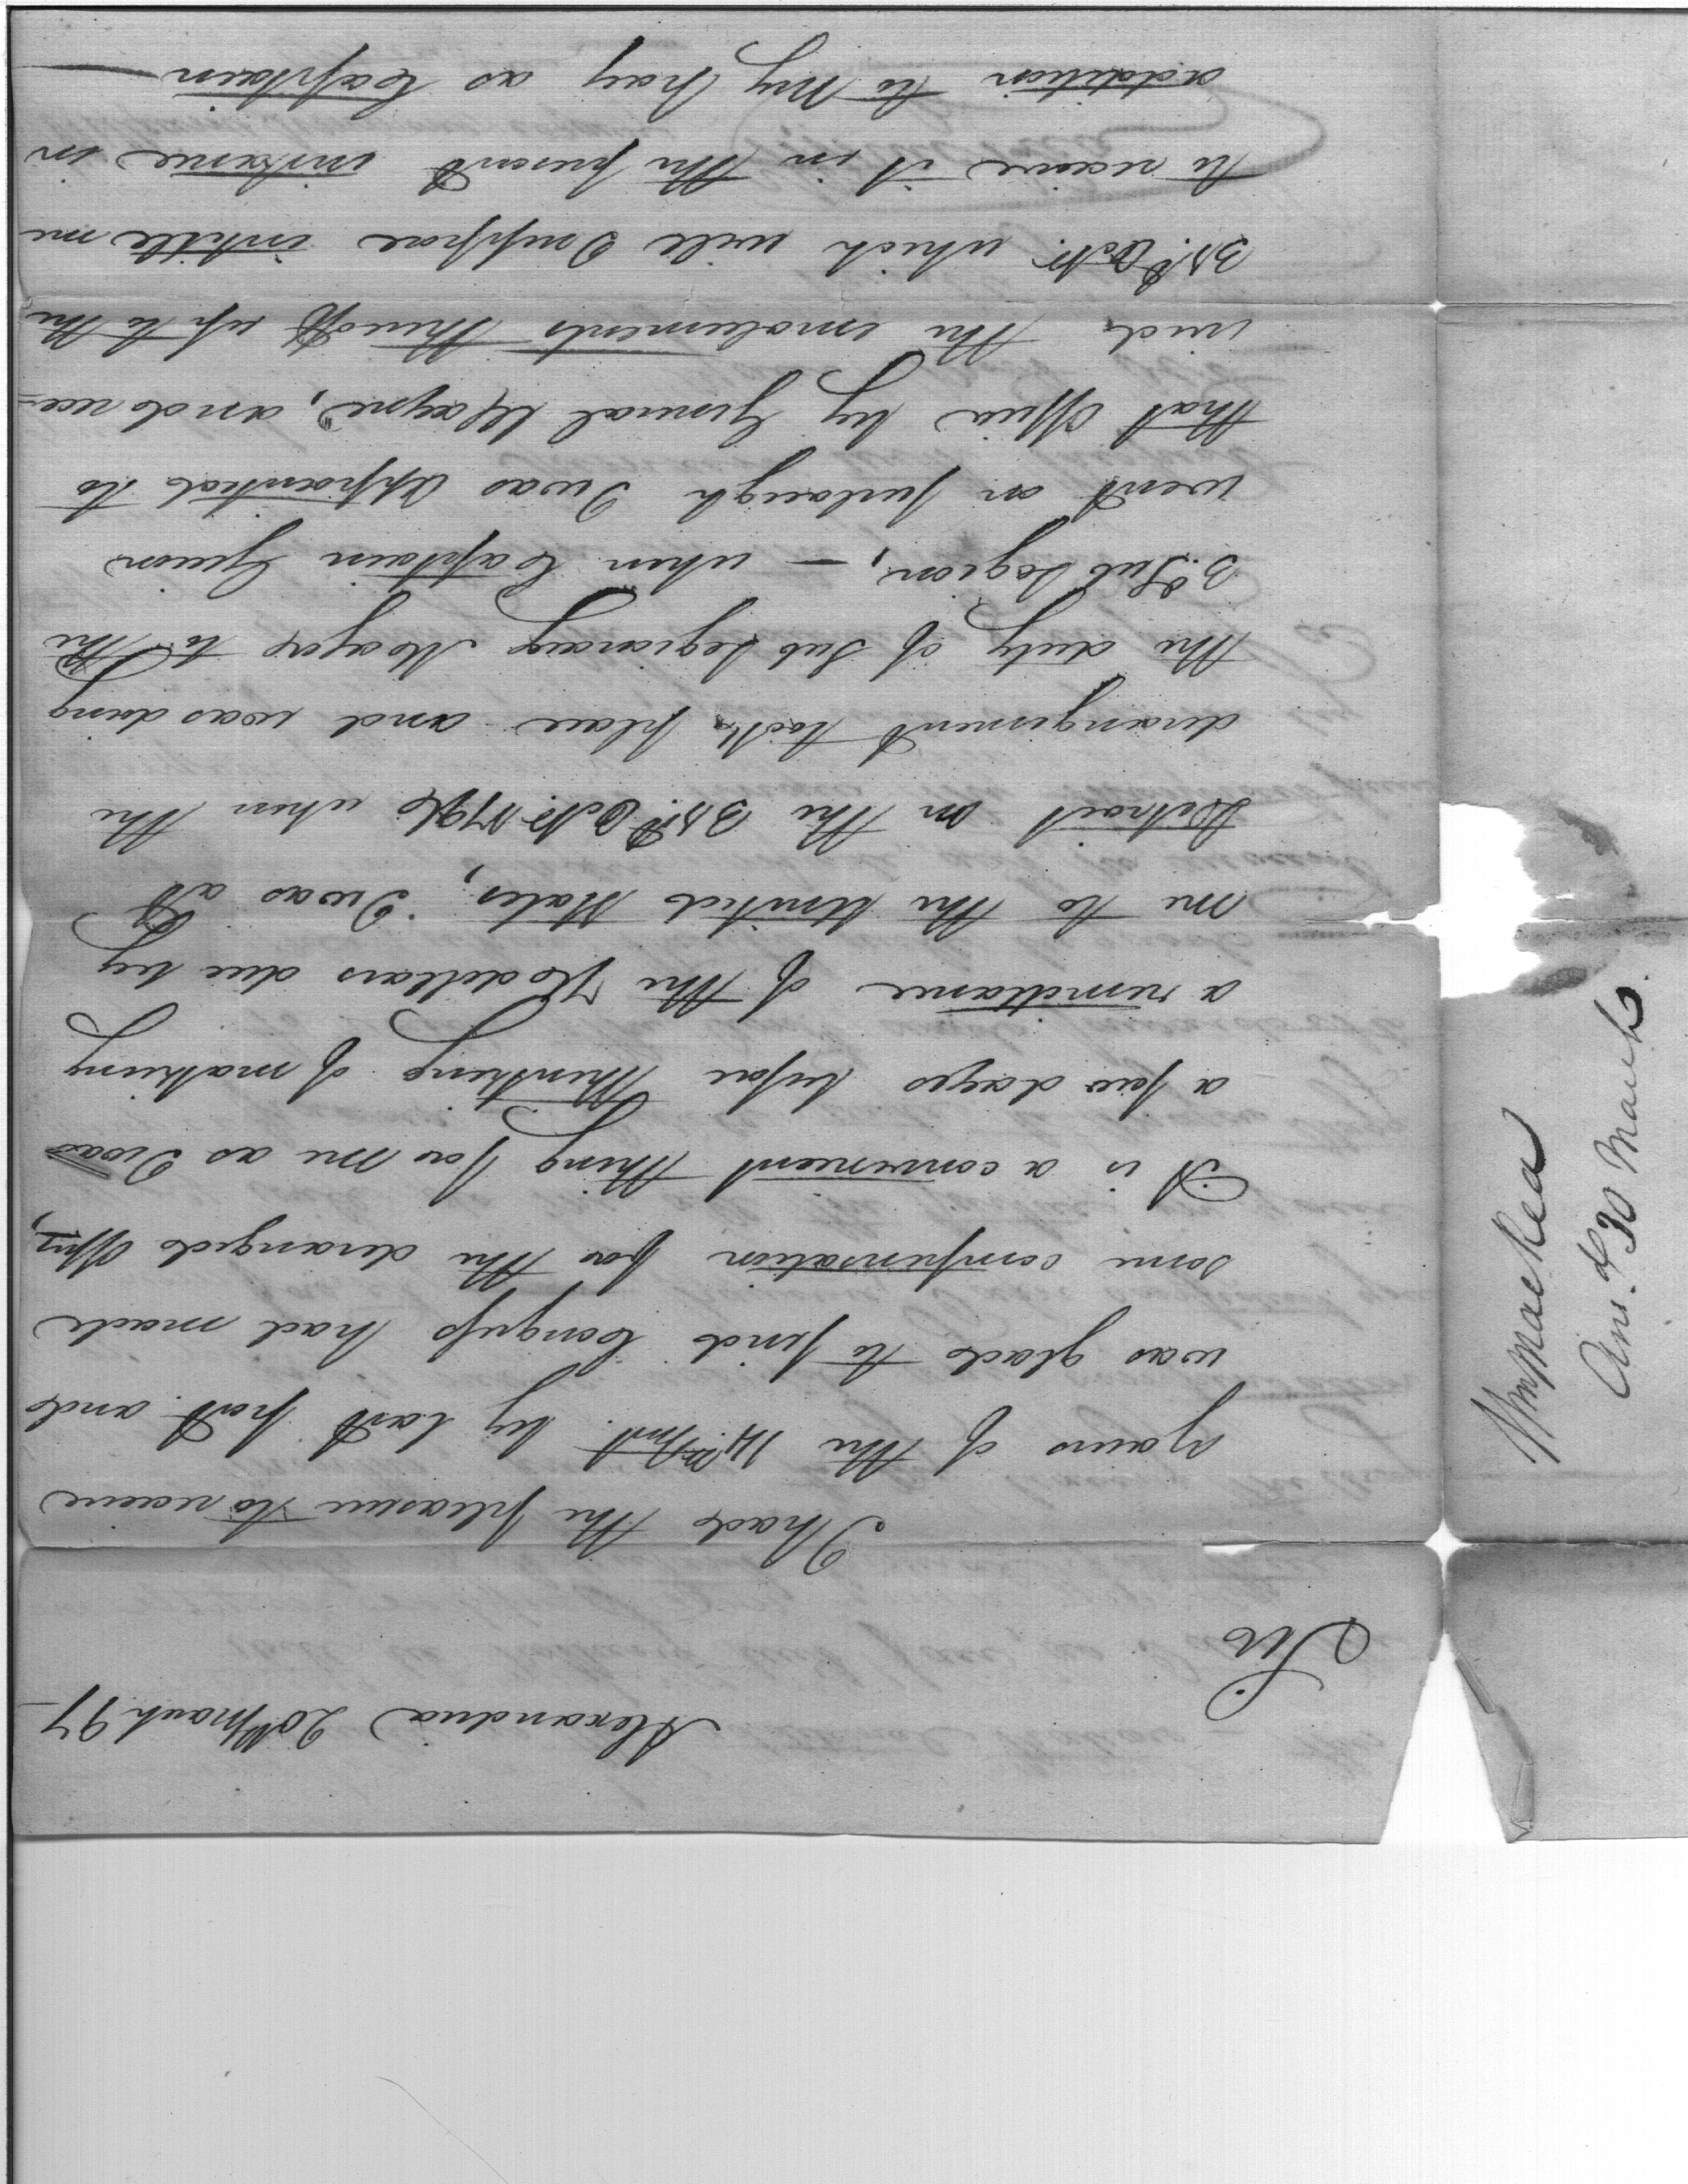 Alexandria 20th March 97
Sir
I had the pleasure to receive
yours of the 14th Inst by last post and
was glad to find Congress had made
some compensation for the deranged Offrs,
it is a convenient thing for me as I was
a few days before thinking of making
a remittance of the 76 dollars due by
me to the United States, I was at
Detroit on the 31st Octr 1796 when the
derangement took place and was doing
the duty of Sub Legionary Major to the
3d Sub Legion, — when Captain Guion
went on furlough I was appointed to
that office by General Wayne, and rece-
ived the emoluments thereof up to the
31st Octr. which will I suppose intitle me
to receive it in the present instance in
addition to my pay as Captain
Wm MacRea
Ansd 30 March